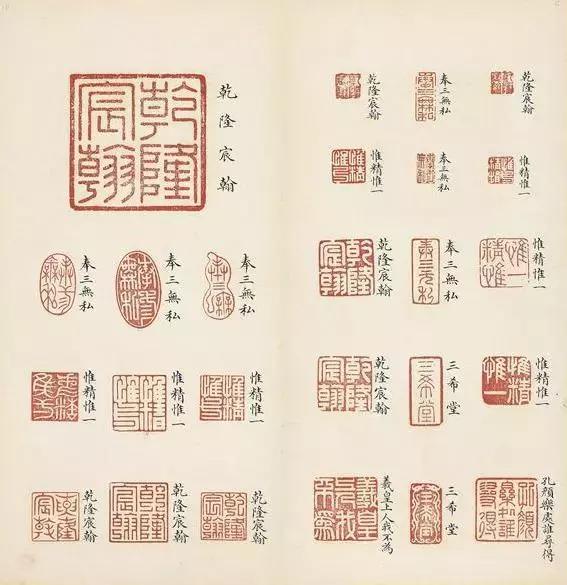 乾隆宸翰
奉三無私
乾隆宸翰
惟精惟一
奉三無私
惟精惟一
惟精惟一
奉三無私
乾隆宸翰
惟精惟一
三希堂
乾隆宸翰
孔顏樂處誰尋得
三希堂
羲皇上人我不為
乾隆宸翰
乾隆宸翰
奉三無私
奉三無私
奉三無私
惟精惟一
惟精惟一
惟精惟一
乾隆宸翰
乾隆宸翰
乾隆宸翰